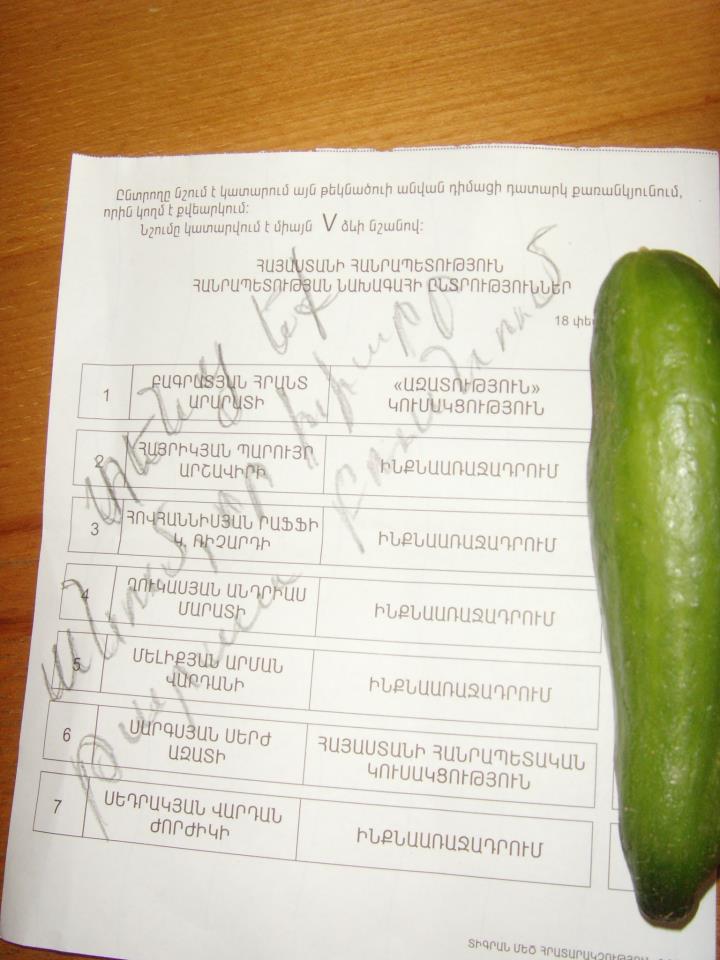 Ընտրողը նշում է կատարում այն թեկնածուի անվան դիմացի դատարկ քառանկյունում,
որին կողմ է քվեարկում:
Նշումը կատարվում է միայն V ձևի նշանով:
ՀԱՅԱՍՏԱՆԻ ՀԱՆՐԱՊԵՏՈՒԹՅՈՒՆ
ՀԱՆՐԱՊԵՏՈՒԹՅԱՆ ՆԱԽԱԳԱՀԻ ԸՆՏՐՈՒԹՅՈՒՆՆԵՐ
18 փե
1 ԲԱԳՐԱՏՅԱՆ ՀՐԱՆՏ «ԱԶԱՏՈՒԹՅՈՒՆ»
ԱՐԱՐԱՏԻ ԿՈՒՍԱԿՑՈՒԹՅՈՒՆ
2 ՀԱՅՐԻԿՅԱՆ ՊԱՐՈՒՅՐ ԻՆՔՆԱԱՌԱՋԱԴՐՈՒՄ
ԱՐՇԱՎԻՐԻ
3 ՀՈՎՀԱՆՆԻՍՅԱՆ ՐԱՖՖԻ ԻՆՔՆԱԱՌԱՋԱԴՐՈՒՄ
Կ. ՌԻՉԱՐԴԻ
4 ՂՈՒԿԱՍՅԱՆ ԱՆԴՐԻԱՍ ԻՆՔՆԱԱՌԱՋԱԴՐՈՒՄ
ՄԱՐԱՏԻ
5 ՄԵԼԻՔՅԱՆ ԱՐՄԱՆ ԻՆՔՆԱԱՌԱՋԱԴՐՈՒՄ
ՎԱՐԴԱՆԻ
6 ՍԱՐԳՍՅԱՆ ՍԵՐԺ ՀԱՅԱՍՏԱՆԻ ՀԱՆՐԱՊԵՏԱԿԱՆ
ԱԶԱՏԻ ԿՈՒՍԱԿՑՈՒԹՅՈՒՆ
7 ՍԵԴՐԱԿՅԱՆ ՎԱՐԴԱՆ ԻՆՔՆԱԱՌԱՋԱԴՐՈՒՄ
ԺՈՐԺԻԿԻ
ՏԻԳՐԱՆ ՄԵԾ ՀՐԱՏԱՐԱԿՉՈՒԹՅՈՒՆ